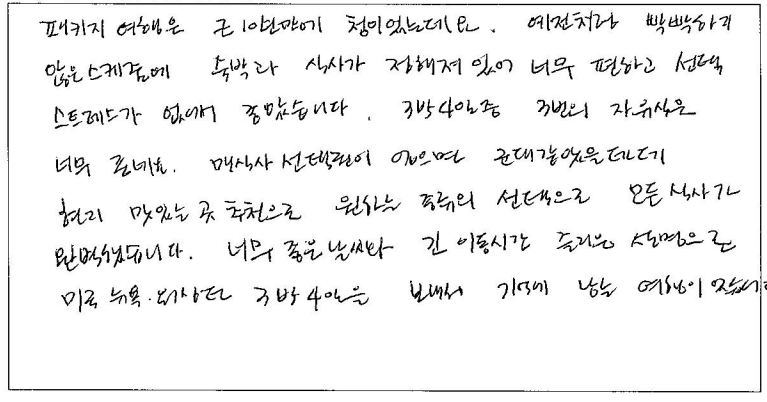 패키지 여행은 근 10년만에 첨이었는데요. 예전처럼 빡빡하지
않은 스케줄에 숙박과 식사가 정해져 있어 너무 편하고 선택
스트레스가 없어서 좋았습니다. 3박4일중 3번의 자유식은
너무 좋네요. 매식사 선택권이 없으면 군대같았을텐데
현지 맛있는 곳 추천으로 원하는 종류의 선택으로 모든 식사가
완벽했습니다. 너무 좋은 날씨와 긴 이동시간 즐거운 설명으로
미국 뉴욕·워싱턴 3박4일을 보내서 기억에 남는 여행이